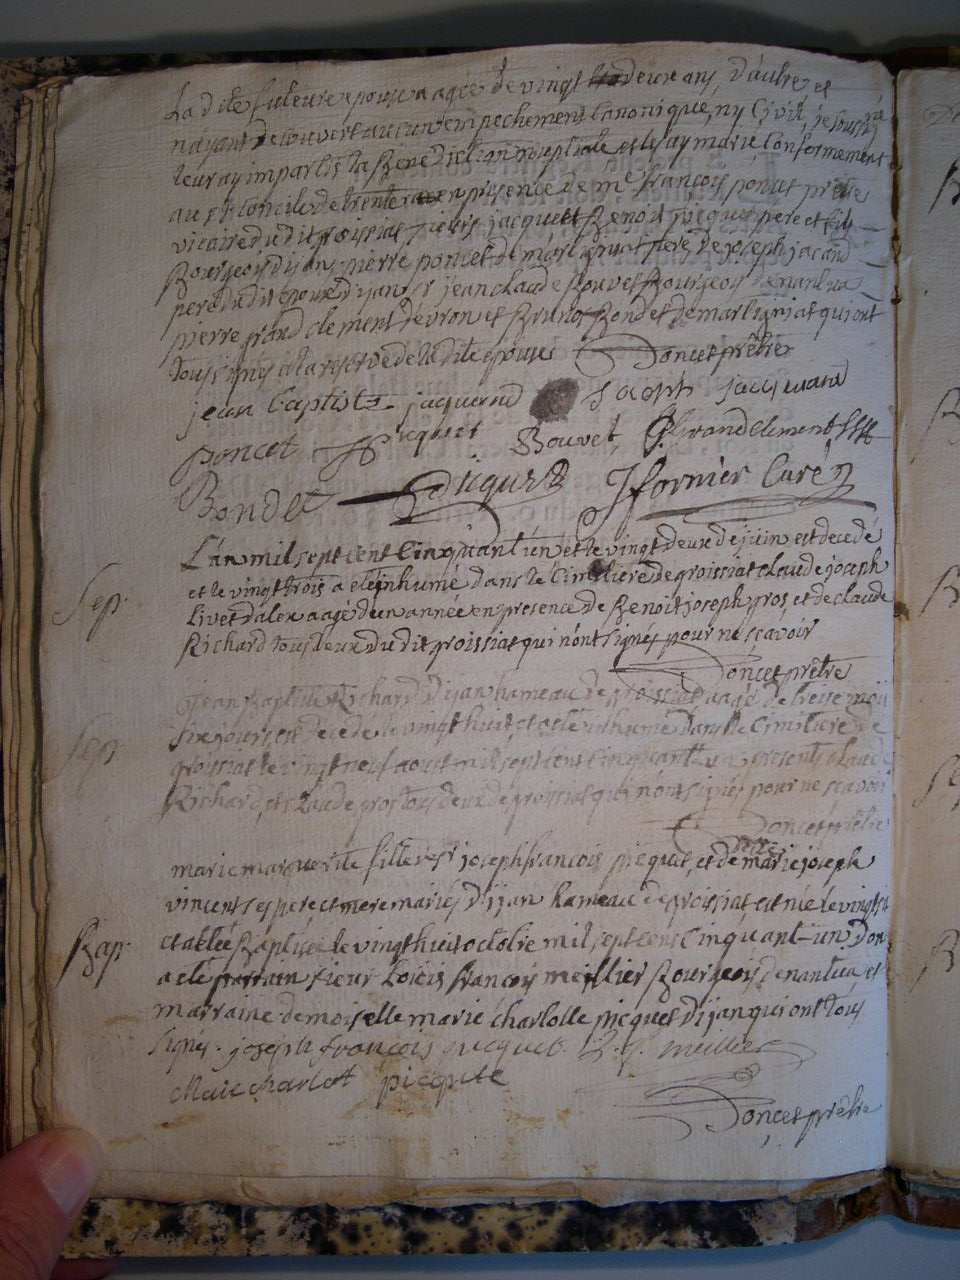 La dite future epouse agée de vingt deux ans, d'autre et
n'ayant decouvert aucun empechement canonique, ny Civil, je soussigné
leur ay impartis la Benediction nuptiale et les ay marié Conformement
au St Concile de trente en presence de me françois poncet prêtre
vicaire du dit groissiat, sieurs jacque et Benoit picquet pere et fils
Bourgeois d'ijan, pierre poncet de martignat pere de joseph jacand
pere du dit epoux d'ijan sr jean claude Bouvet Bourgeois de nantua
pierre grand clement devron et Bruno Bondet de martigniat qui ont
tous signés a la reserve de la dite epouse Poncet prêtre
jean Baptiste jaquand joseph jacquand
poncet picquet Bouvet P. Grandclement
Bondet picquet Jfornier Curé
Sep. L'an mil sept cent Cinquant'un et le vingt deux de juin est decedé
et le vingt trois a eté inhumé dans le Cimetiere de groissiat claude joseph
Livet d'alex agé d'un année en presence de Benoit joseph gros et de claude
Richard tous deux du dit groissiat qui n'ont signés pour ne scavoir
Poncet prêtre
Sep. jean Baptiste Richard d'ijan hameau de groissiat agé de treise mois
six jours est decedé le vingt huit et a eté inhumé dans le Cimetiere de
groissiat le vingt neuf aoust mil sept cent Cinquant'un presents claude
Richard, et claude gros tous deux de groissiat qui n'ont signés pour ne scavoir
Poncet prêtre
marie marguerite fille de sr joseph françois picquet, et de delle marie joseph
vincent ses pere et mere mariés d'ijan hameau de groissiat est née le vingt sept
Bap. et a eté Baptisée le vingt huit octobre mil sept cent Cinquant-un dont
a eté parrain sieur Loüis françois meillier Bourgeois de nantua, et
marraine demoiselle marie charlotte picquet d'ijan qui ont tous
signés. joseph françois picquet. L. f. meillier
Marie charlot picquet
Poncet prêtre